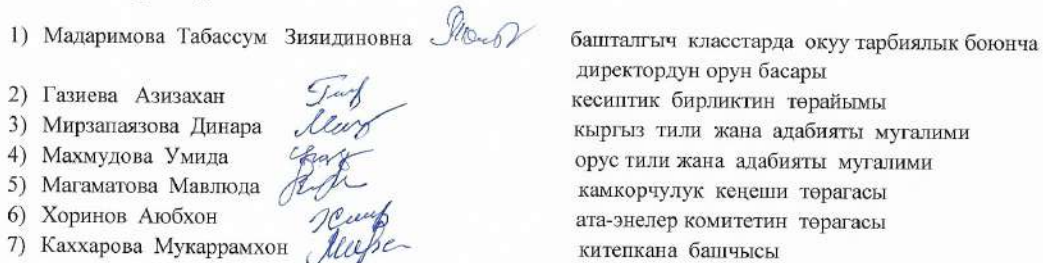 1) Мадаримова Табассум Зияидиновна башталгыч класстарда окуу тарбиялык боюнча
директордун орун басары
2) Газиева Азизахан кесиптик бирликтин төрайымы
3) Мирзапаязова Динара кыргыз тили жана адабияты мугалими
4) Махмудова Умида орус тили жана адабияты мугалими
5) Магаматова Мавлюда камкорчулук кеңеши төрагасы
6) Хоринов Аюбхон ата-энелер комитетин төрагасы
7) Каххарова Мукаррамхон китепкана башчысы